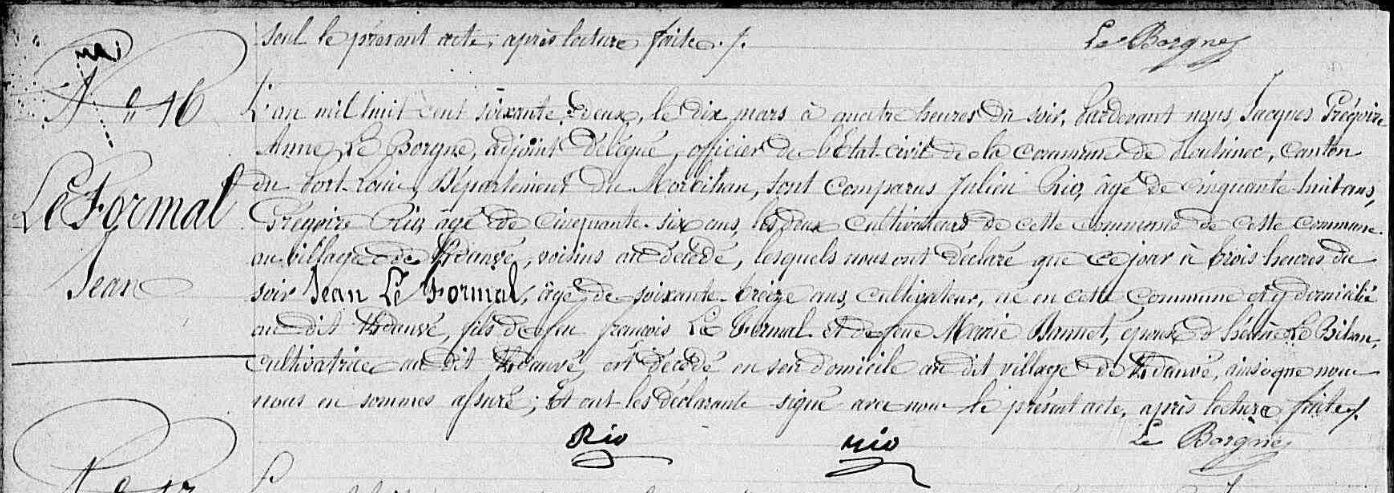 seul le présent acte, après lecture faite ./.
Le Borgne
mai
N° 16
Le Formal
Jean
L'an mil huit cent soixante deux, le dix mars à quatre heures du soir, pardevant nous Jacques Grégoire
Anne Le Borgne, adjoint délégué, officier de l'Etat civil de la commune de Plouhinec, canton
du Port-Louis, Département du Morbihan, sont comparus Julien Rio, âgé de cinquante huit ans,
Grégoire Rio, âgé de cinquante-six ans, les deux cultivateurs de cette commune de cette commune
au village de voisins du décédé, lesquels nous ont déclaré que ce jour à trois heures du
soir Jean Le Formal, âgé de soixante-treize ans, cultivateur, né en cette commune et y domicilié
au dit fils de feu françois Le Formal et de feue Marie époux d'Hélène Le Bihan,
cultivatrice au dit est décédé en son domicile au dit village de ainsi que nous
nous en sommes assuré; Et ont les déclarants signé avec nous le présent acte, après lecture faite ./.
Rio
Rio
Le Borgne
N° 17